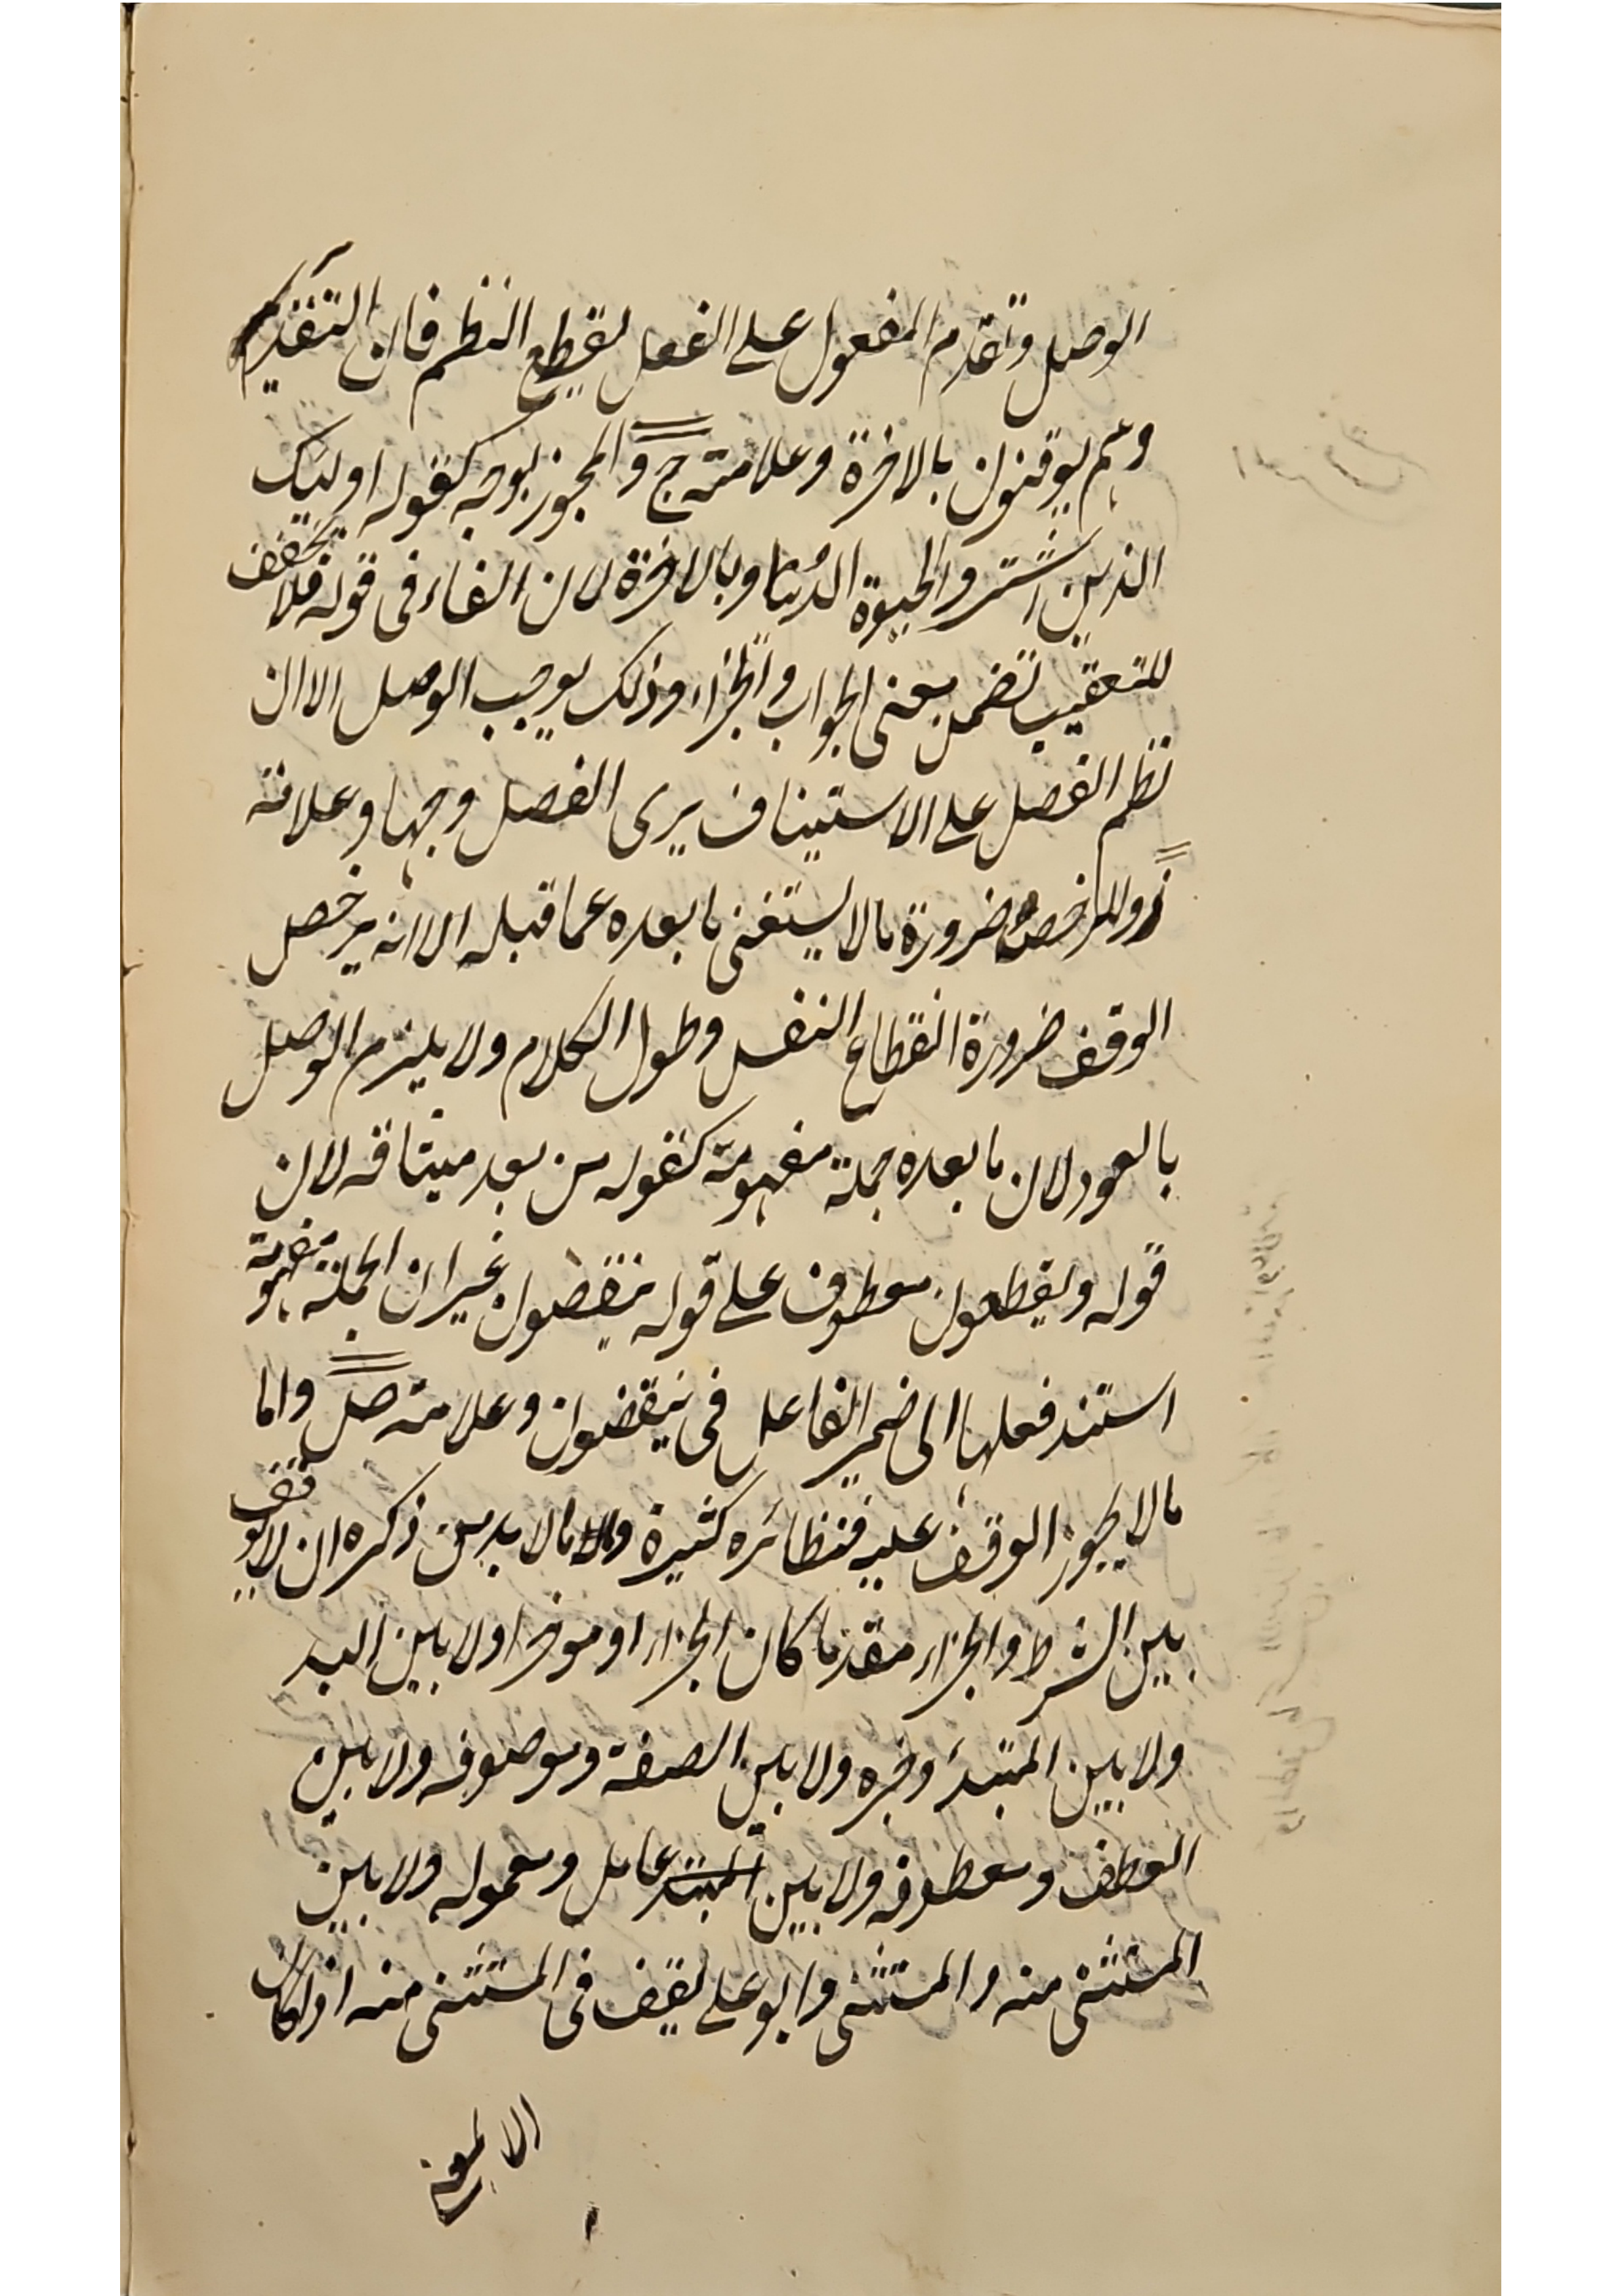 الوصل وتقدم المفعول على الفعل لقطع النظم فان التقدير
وهم يوقنون بالاخرة وعلامته ج والمجوز لوجه كقوله اولئك
الذين اشتروا الحيوة الدنيا وبالاخرة لان الفاء فى قوله فلا يخفف
للتعقيب تضمن معنى الجواب والجزاء وذلك يوجب الوصل الا ان
نظم الفصل على الاستيناف يرى الفصل وجها وعلامته
ز والمرخص ضرورة مالا يستغنى ما بعده عما قبله الا انه يرخص
الوقف ضرورة انقطاع النفس وطول الكلام ولا يلزم الوصل
بالعود لان ما بعده جملة مفهومة كقوله من بعد ميثاقه لان
قوله ويقطعون معطوف على قوله ينقضون غير ان الجملة مفهومة
استند فعلها الى ضمير الفاعل فى ينقضون وعلامته ص واما
مالا يجوز الوقف عليه فنظائره كثيرة مالا بد من ذكره ان لا يوقف
بين الشرط والجزاء مقدما كان الجزاء او موخرا ولا بين البد
ولا بين المبتدء وخبره ولا بين الصفة وموصوفه ولا بين
العطف ومعطوفه ولا بين المبتدء عامل ومعموله ولا بين
المستثنى منه والمستثنى وابو على يقف فى المستثنى منه اذا كان